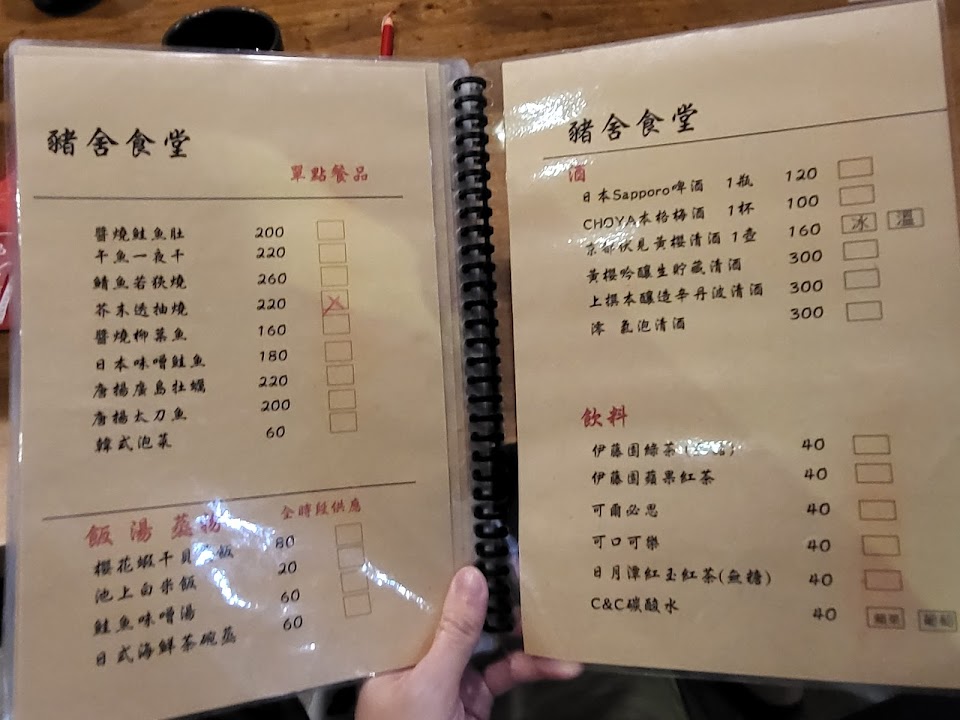 豬舍食堂
單點餐品
醬燒鮭魚肚 200
午魚一夜干 220
鯖魚若狹燒 260
芥末透抽燒 220
醬燒柳葉魚 160
日本味噌鮭魚 180
唐揚廣島牡蠣 220
唐揚太刀魚 200
韓式泡菜 60
飯湯蒸物 全時段供應
櫻花蝦干貝飯 80
池上白米飯 20
鮭魚味噌湯 60
日式海鮮茶碗蒸 60
豬舍食堂
酒
日本Sapporo啤酒 1瓶 120
CHOYA本格梅酒 1杯 100
京都伏見黃櫻清酒 1壺 160 冰 溫
黃櫻吟釀生貯藏清酒 300
上撰本釀造辛丹波清酒 300
澪 氣泡清酒 300
飲料
伊藤園綠茶 40
伊藤園蘋果紅茶 40
可爾必思 40
可口可樂 40
日月潭紅玉紅茶(無糖) 40
C&C碳酸水 40 蘋果 葡萄